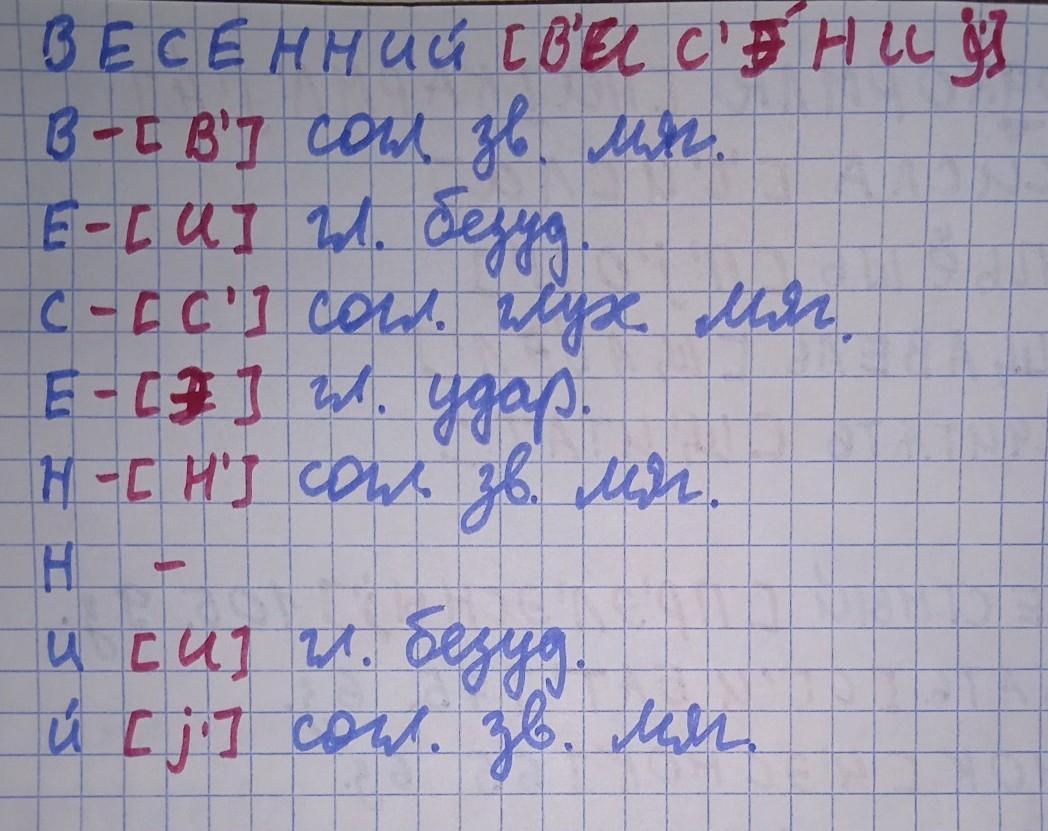 ВЕСЕННИЙ [В'И С'Э́ Н И Й]
В - [В'] согл. зв. мяг.
Е - [И] гл. безуд.
С - [С'] согл. глух. мяг.
Е - [Э] гл. удар.
Н - [Н'] согл. зв. мяг.
Н -
И [И] гл. безуд.
Й [j'] согл. зв. мяг.